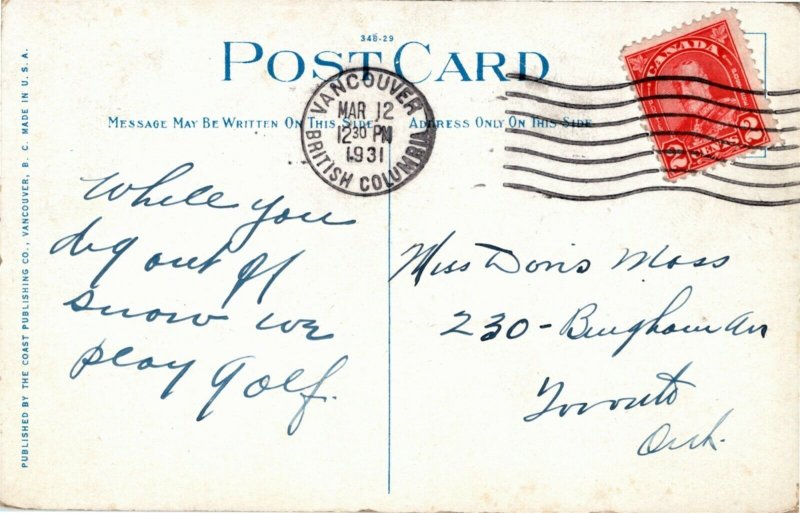 348-29
POST CARD
MESSAGE MAY BE WRITTEN ON THIS SIDE
ADDRESS ONLY ON THIS SIDE
VANCOUVER
MAR 12
12 30 PM
1931
BRITISH COLUMBIA
CANADA
2 CENTS 2
PUBLISHED BY THE COAST PUBLISHING CO., VANCOUVER, B. C. MADE IN U. S. A.
While you
dig out of
snow we
play golf.
Miss Doris Moss
230 - Bingham Av
Toronto
Ont.